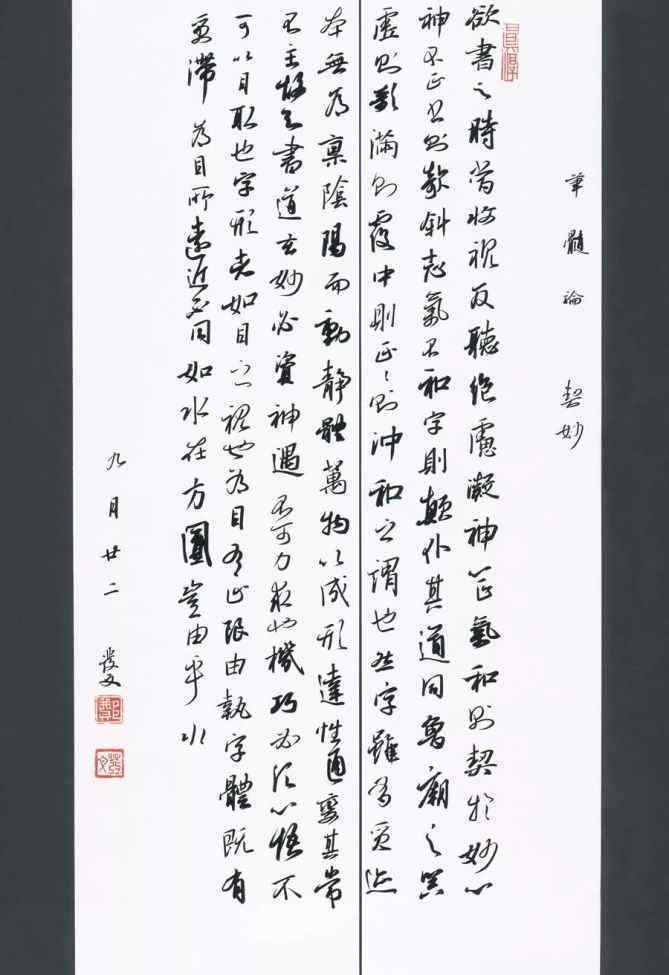 筆髓論 契妙
欲書之時當收視反聽絕慮凝神心正氣和則契於妙心
神不正書則欹斜志氣不和字則顛仆其道同魯廟之器
虛則欹滿則覆中則正々則沖和之謂也然字雖有質迹
本無為稟陰陽而動靜體萬物以成形達性通變其常
不主故知書道玄妙必資神遇不可力求也機巧必須心悟不
可以目取也字形者如目之視也為目有止限由執字體既有
質滯為目所遠近不同如水在方圓豈由乎水
九月廿二